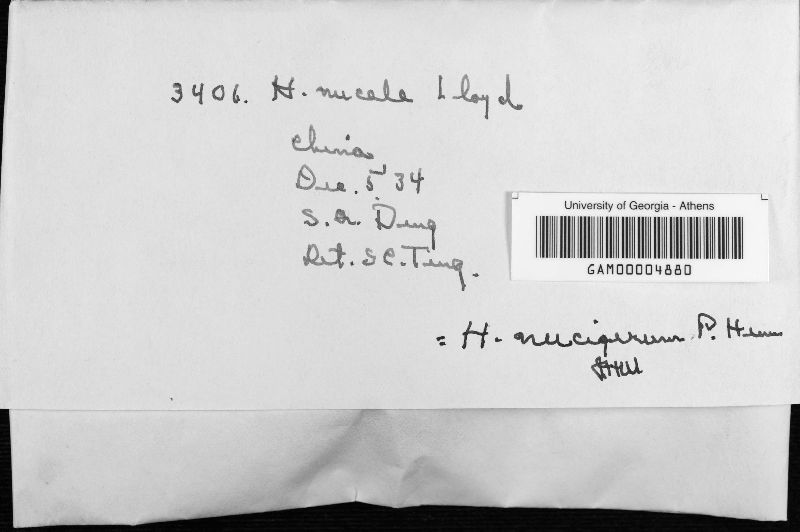 3406. H. nucale Lloyd
China
Dec. 5 '34
S. Q. Deng
Det. S C. Teng.
University of Georgia - Athens
GAM00004880
= H. nucigerum P. Henn
JHM